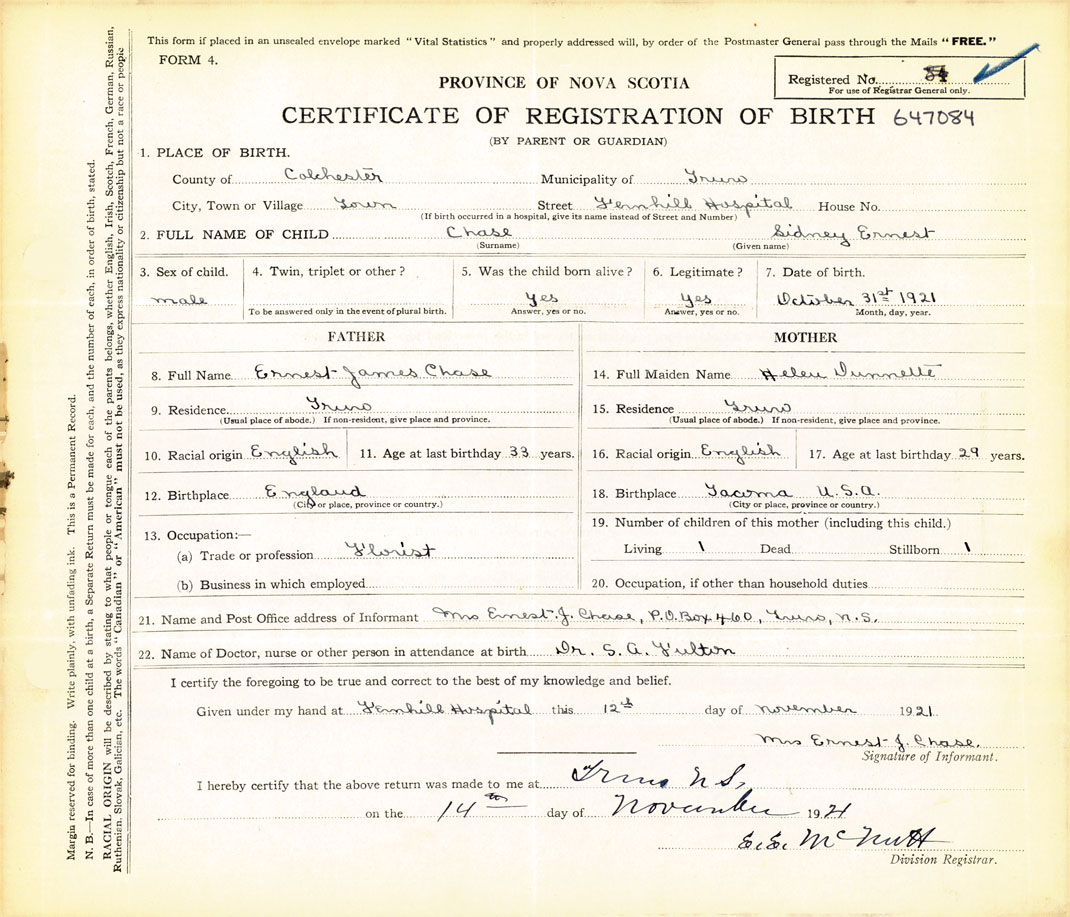 This form if placed in an unsealed envelope marked "Vital Statistics" and properly addressed will, by order of the Postmaster General pass through the Mails "FREE."
FORM 4.
Registered No.
For use of Registrar General only.
PROVINCE OF NOVA SCOTIA
CERTIFICATE OF REGISTRATION OF BIRTH 647084
(BY PARENT OR GUARDIAN)
1. PLACE OF BIRTH.
County of Colchester Municipality of Truro
City, Town or Village Town Street Fernhill Hospital House No.
(If birth occurred in a hospital, give its name instead of Street and Number)
2. FULL NAME OF CHILD Chase Sidney Ernest
(Surname) (Given name)
3. Sex of child. 4. Twin, triplet or other? 5. Was the child born alive? 6. Legitimate? 7. Date of birth.
male Yes Yes October 31st 1921
To be answered only in the event of plural birth. Answer, yes or no. Answer, yes or no. Month, day, year.
FATHER MOTHER
8. Full Name Ernest James Chase 14. Full Maiden Name Helen Dunnette
9. Residence. Truro 15. Residence Truro
(Usual place of abode.) If non-resident, give place and province. (Usual place of abode.) If non-resident, give place and province.
10. Racial origin English 11. Age at last birthday 33 years. 16. Racial origin English 17. Age at last birthday 29 years.
12. Birthplace England 18. Birthplace Tacoma U.S.A.
(City or place, province or country.) (City or place, province or country.)
13. Occupation:— 19. Number of children of this mother (including this child.)
(a) Trade or profession Florist Living 1 Dead Stillborn 1
(b) Business in which employed 20. Occupation, if other than household duties
21. Name and Post Office address of Informant Mrs Ernest J. Chase, P.O. Box 460, Truro, N.S.
22. Name of Doctor, nurse or other person in attendance at birth Dr. S. A. Fulton
I certify the foregoing to be true and correct to the best of my knowledge and belief.
Given under my hand at Fernhill Hospital this 12th day of november 1921.
Mrs Ernest J. Chase.
Signature of Informant.
I hereby certify that the above return was made to me at Truro N S,
on the 14th day of November 1921
E. E. McNutt
Division Registrar.
Margin reserved for binding. Write plainly, with unfading ink. This is a Permanent Record.
N. B.—In case of more than one child at a birth, a Separate Return must be made for each, and the number of each, in order of birth, stated.
RACIAL ORIGIN will be described by stating to what people or tongue each of the parents belongs, whether English, Irish, Scotch, French, German, Russian,
Ruthenian, Slovak, Galician, etc. The words "Canadian" or "American" must not be used, as they express nationality or citizenship but not a race or people